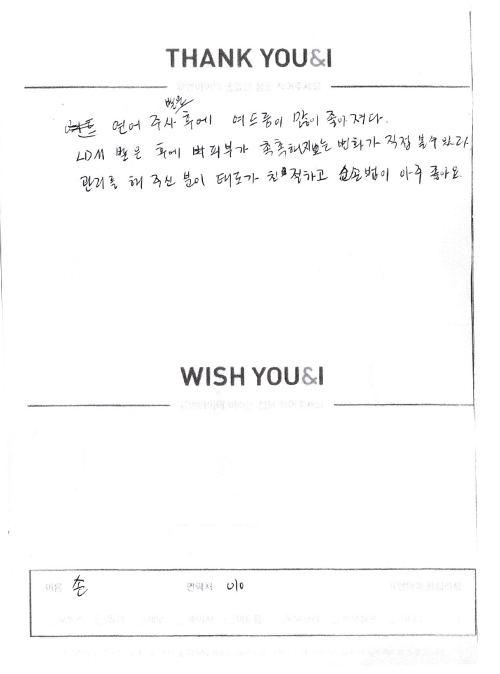 THANK YOU&I
받은
연어 주사 후에 여드름이 많이 좋아져다.
LDM 받은 후에 바피부가 촉촉해지는 변화가 직접 볼 수 있다
관리를 해 주신 분이 태도가 친절하고 손법이 아주 좋아요.
WISH YOU&I
이름 손 연락처 010